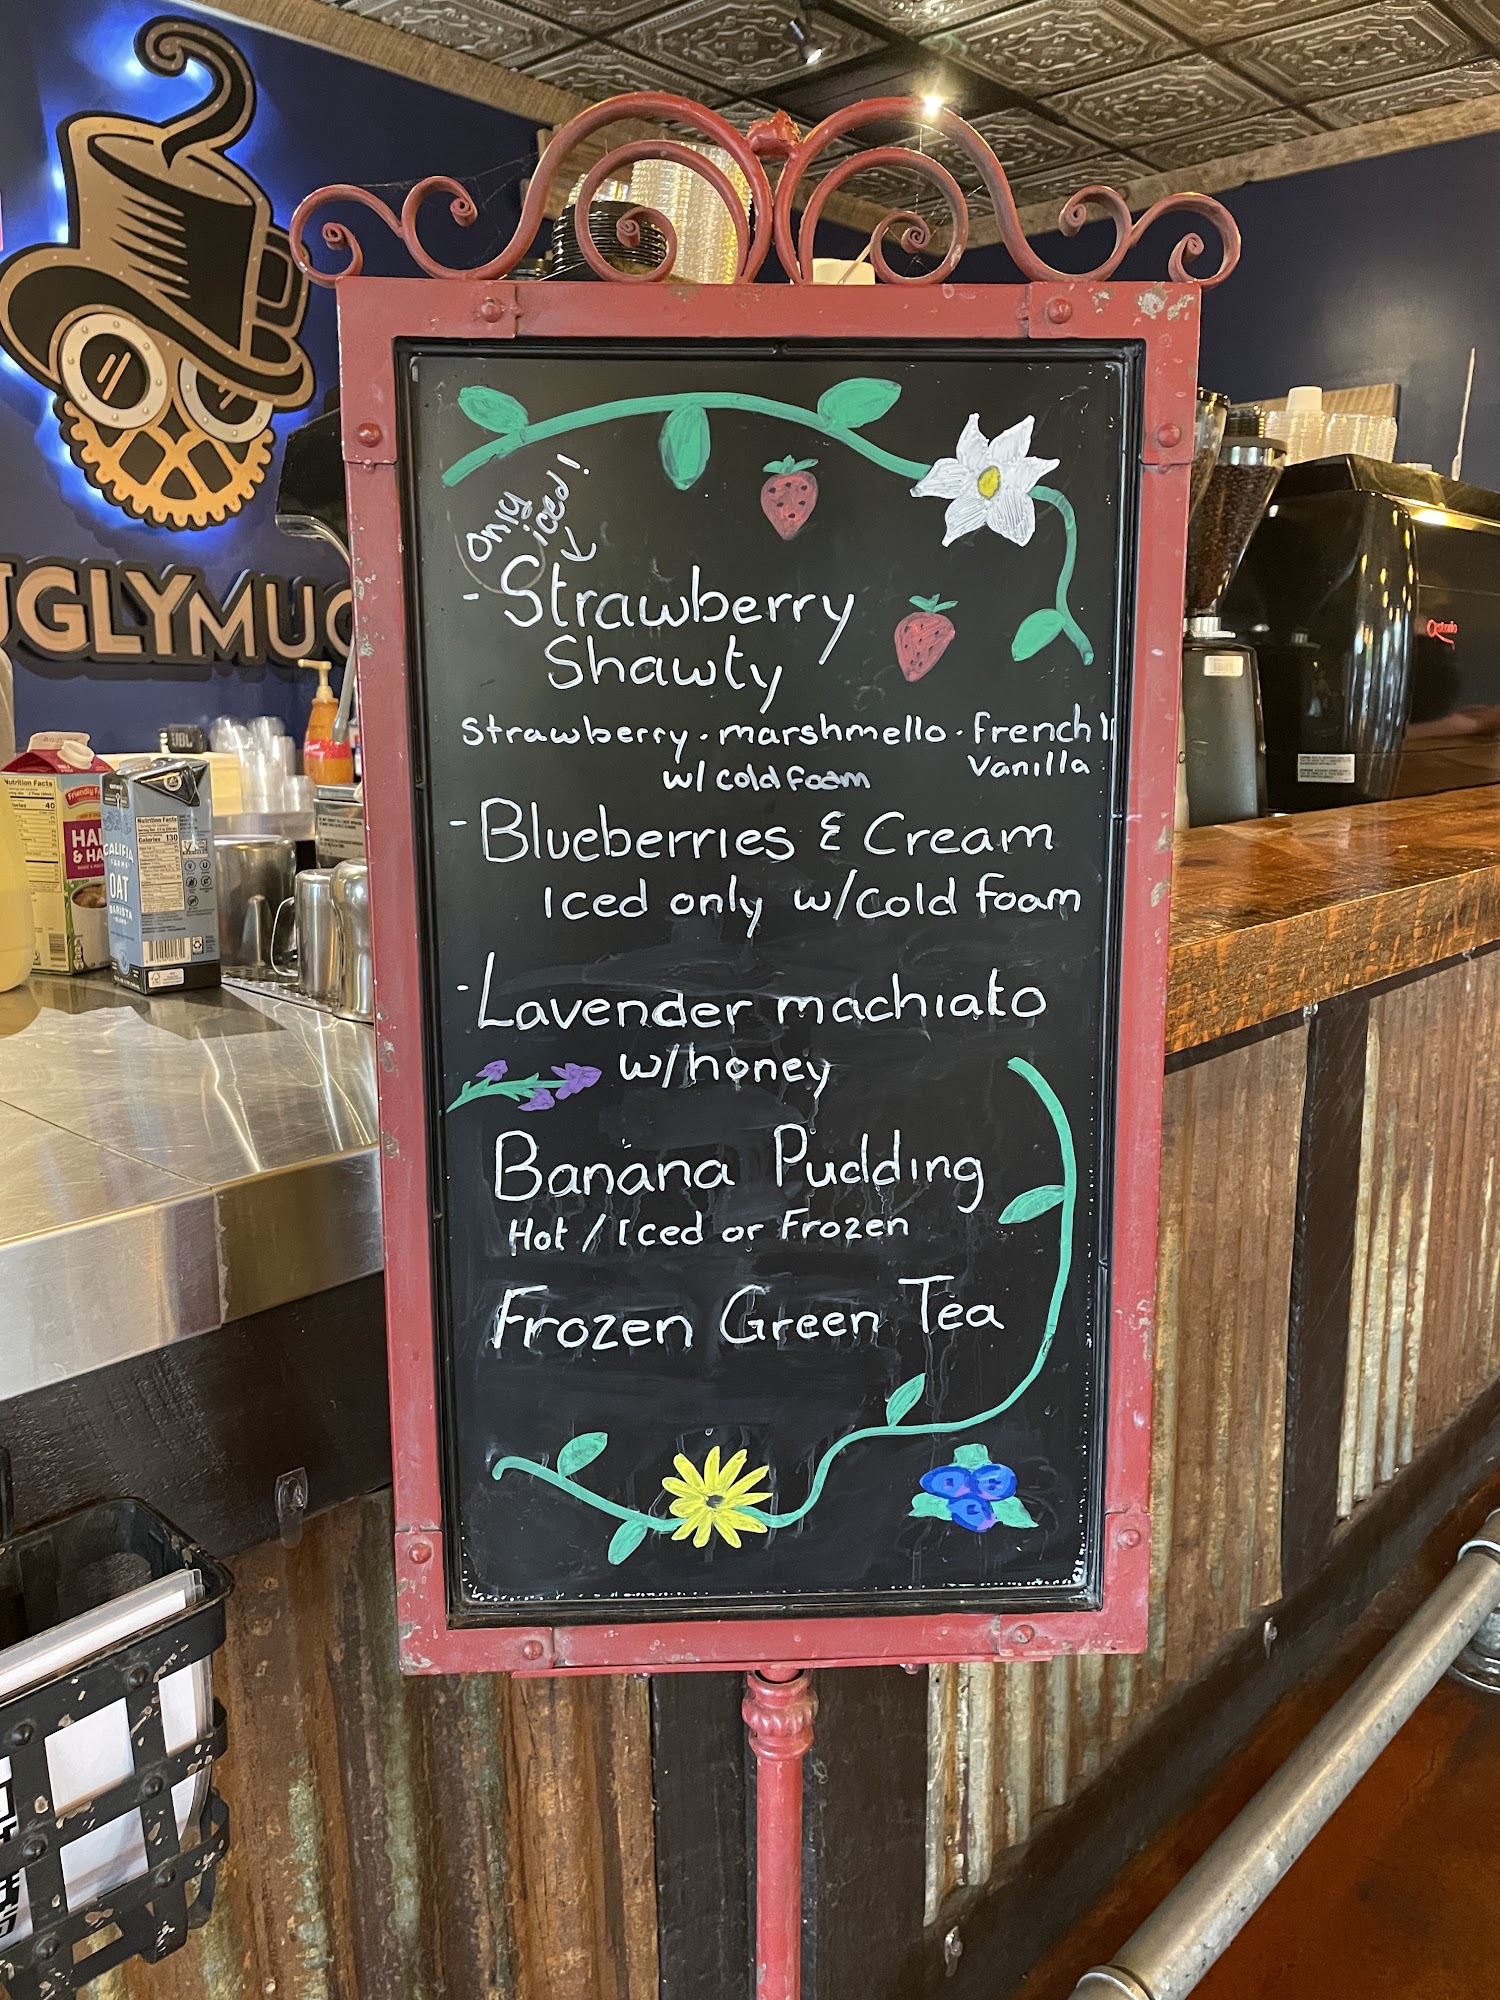 UGLYMUG
Only
iced!
- Strawberry
Shawty
Strawberry · marshmello · French
Vanilla
w/ cold foam
- Blueberries & Cream
Iced only w/cold foam
- Lavender machiato
w/honey
Banana Pudding
Hot / Iced or Frozen
Frozen Green Tea
JBL
Nutrition Facts
40
Friendly Fa
HAL
& HA
Nutrition Facts
Calories 130
CALIFIA
FARMS
OAT
BARISTA
BLEND